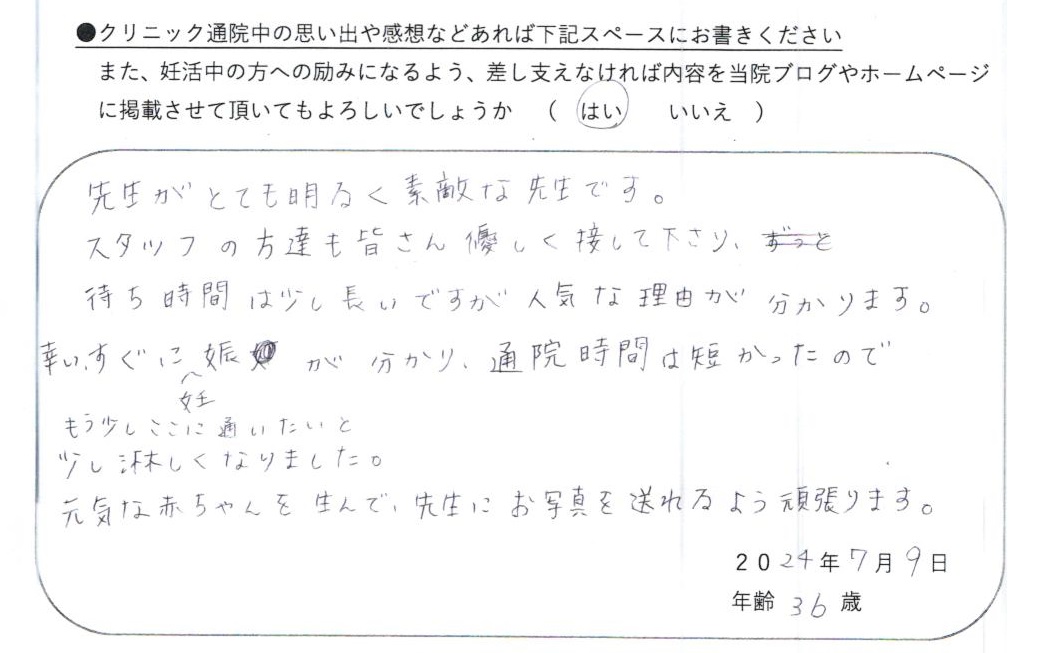 ●クリニック通院中の思い出や感想などあれば下記スペースにお書きください
また、妊活中の方への励みになるよう、差し支えなければ内容を当院ブログやホームページ
に掲載させて頂いてもよろしいでしょうか （ はい いいえ ）
先生がとても明るく素敵な先生です。
スタッフの方達も皆さん優しく接して下さり、ずっと
待ち時間は少し長いですが人気な理由が分かります。
幸い、すぐに娠が分かり、通院時間は短かったので
妊
もう少しここに通いたいと
少し淋しくなりました。
元気な赤ちゃんを生んで、先生にお写真を送れるよう頑張ります。
2024年7月9日
年齢 36 歳